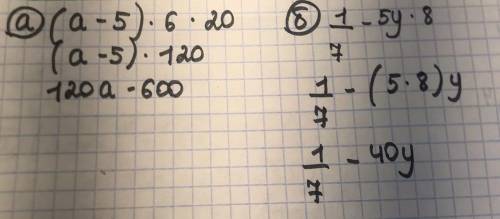 а) (a - 5) · 6 · 20
(a - 5) · 120
120a - 600
б) 1/7 - 5y · 8
1/7 - (5 · 8) y
1/7 - 40y